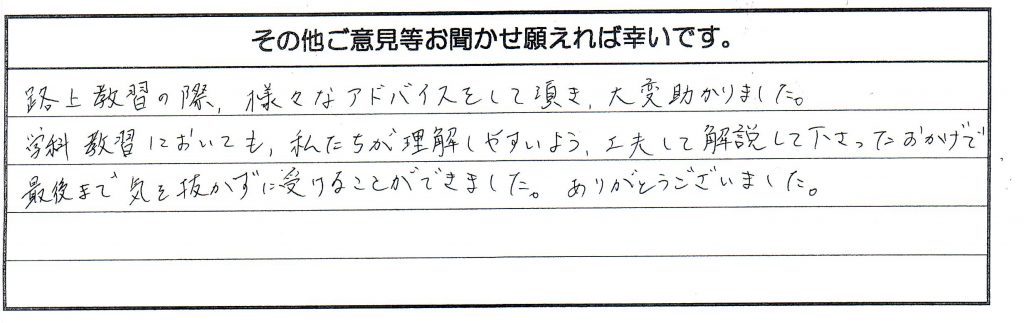 その他ご意見等お聞かせ願えれば幸いです。
路上教習の際、様々なアドバイスをして頂き、大変助かりました。
学科教習においても、私たちが理解しやすいよう、工夫して解説して下さったおかげで
最後まで気を抜かずに受けることができました。ありがとうございました。